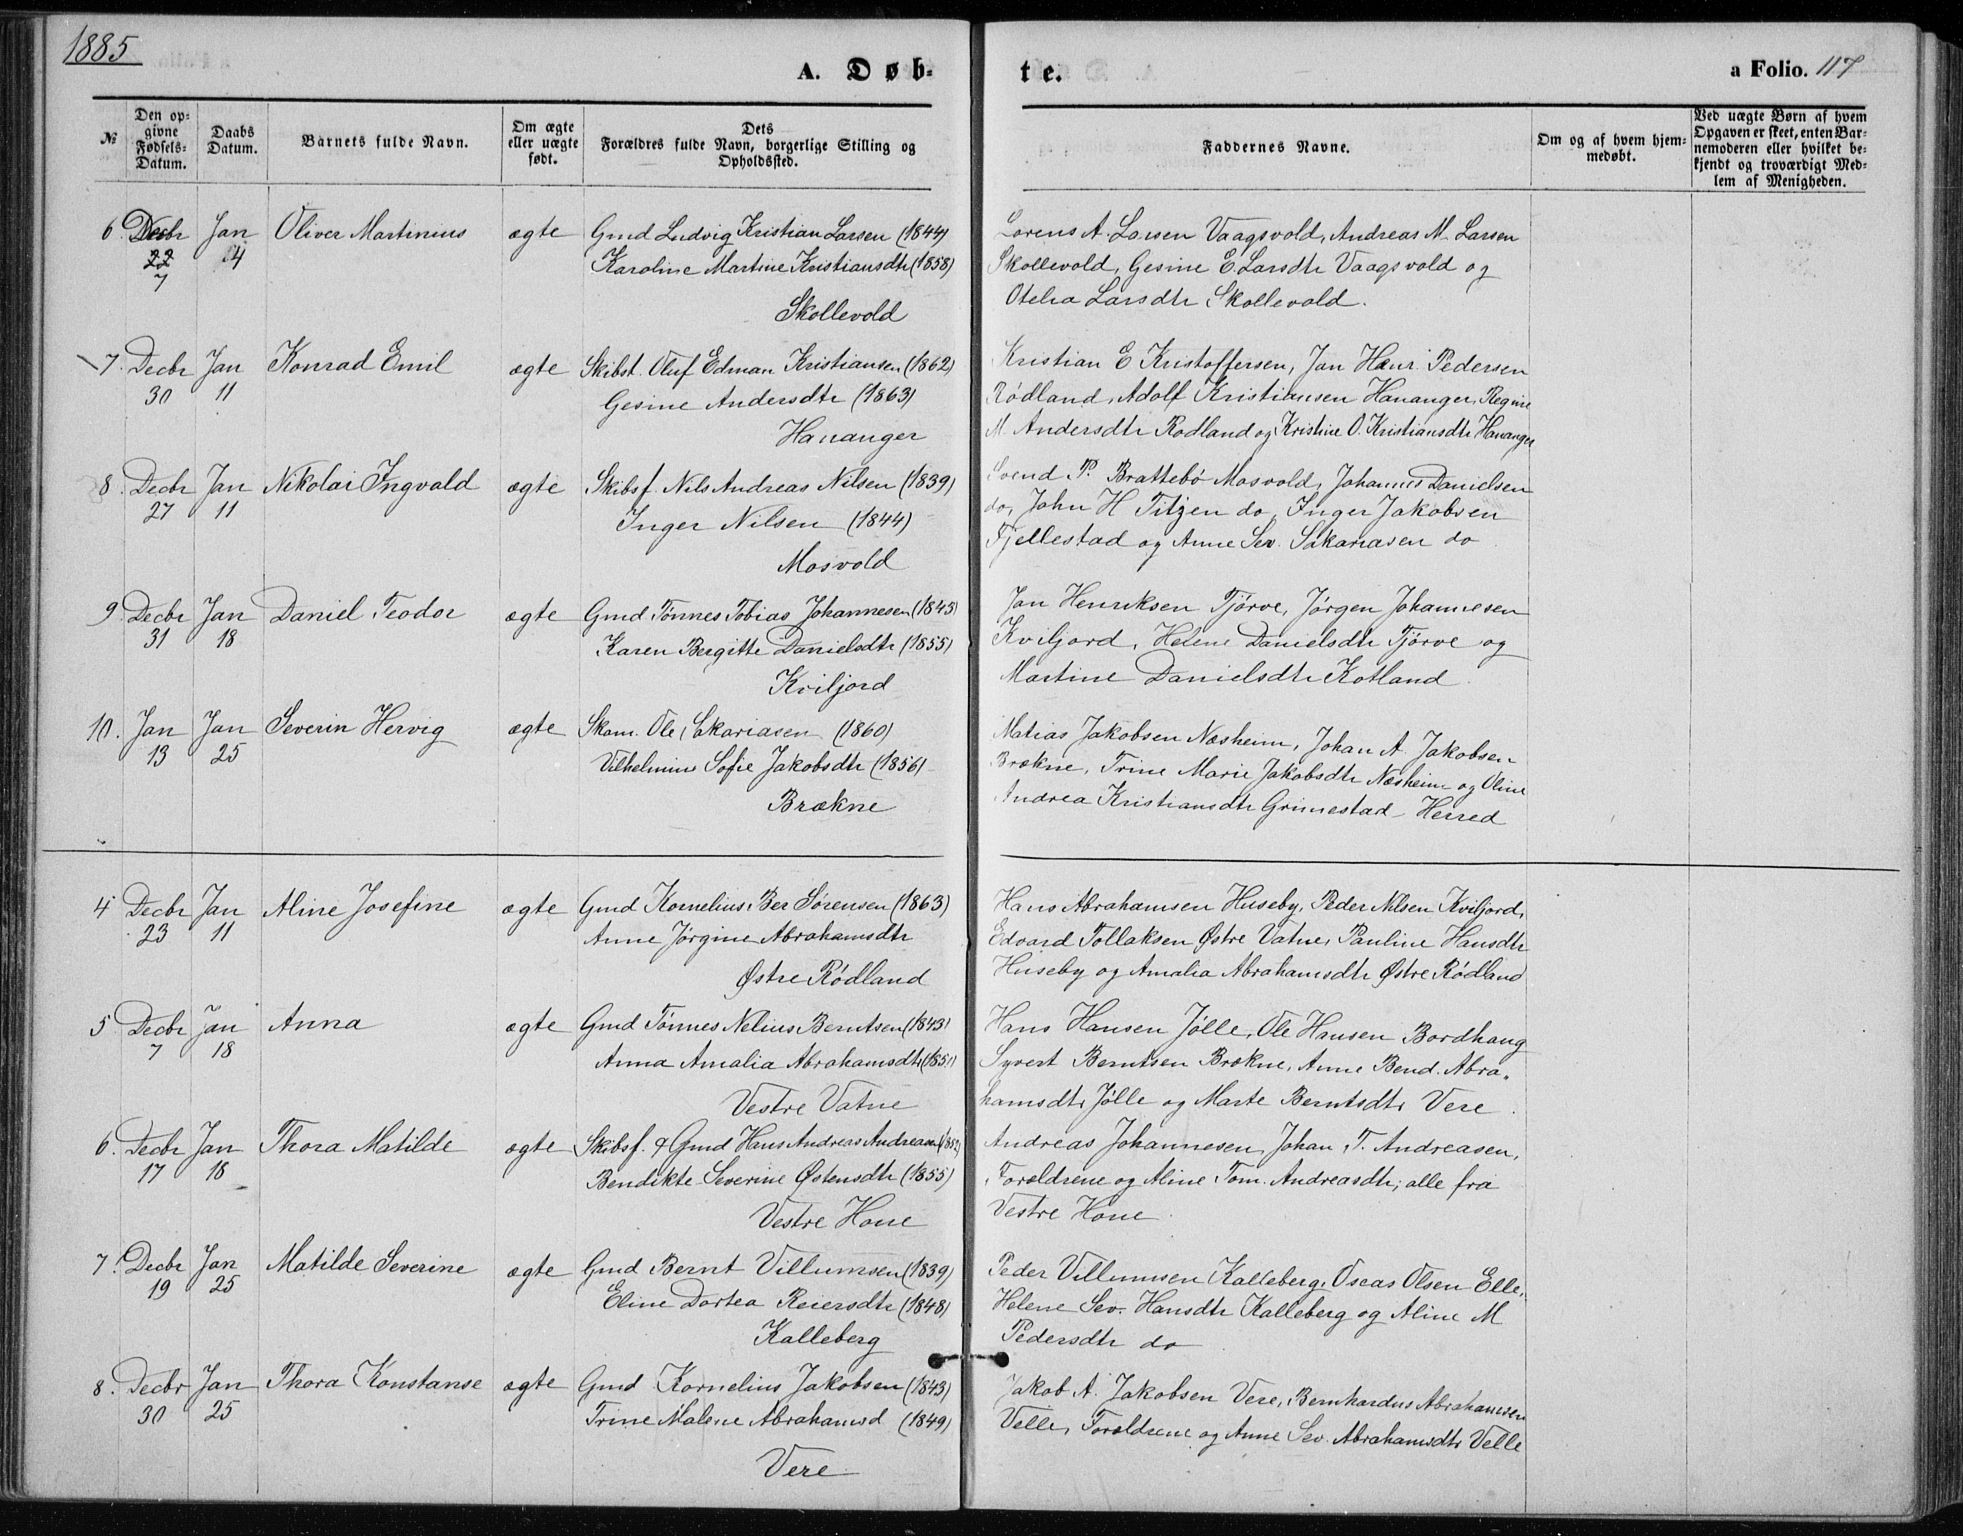 1885
A. Døb-
te.
a Folio. 117
№
Den op-
givne
Fødsels-
Datum.
Daabs
Datum.
Barnets fulde Navn.
Om ægte
eller uægte
født.
Dets
Forældres fulde Navn, borgerlige Stilling og
Opholdssted.
Faddernes Navne.
Om og af hvem hjem-
medøbt.
Ved uægte Børn af hvem
Opgaven er skeet, enten Bar-
nemoderen eller hvilket be-
kjendt og troværdigt Med-
lem af Menigheden.
6. Decbr Jan Oliver Martinius ægte Gmd Ludvig Kristian Larsen (1844)
22 4 Karoline Martine Kristiansdtr (1858)
7
Skollevold
Lorens A. Larsen Vaagsvold, Andreas M. Larsen
Skollevold, Gesine E. Larsdtr Vaagsvold og
Otelia Larsdtr Skollevold.
7. Decbr Jan Konrad Emil ægte Skibst. Oluf Edman Kristiansen (1862)
30 11 Gesine Andersdtr (1863)
Hananger
Kristian E Kristoffersen, Jan Henr. Pedersen
Rødland, Adolf Kristiansen Hananger, Regine
M. Andersdtr Rødland og Kristine O. Kristiansdtr Hananger
8. Decbr Jan Nikolai Ingvald ægte Skibsf. Nils Andreas Nilsen (1839)
27 11 Inger Nilsen (1844)
Mosvold
Svend P. Brattebø Mosvold, Johannes Danielsen
do, John H Titzen do, Inger Jakobsen
Fjellestad og Anne Sev. Sakariasen do
9. Decbr Jan Daniel Teodor ægte Gmd Tønnes Tobias Johannesen (1845)
31 18 Karen Bergitte Danielsdtr (1855)
Kviljord
Jan Henriksen Tjørve, Jørgen Johannesen
Kviljord, Helene Danielsdtr Tjørve og
Martine Danielsdtr Kotland.
10. Jan Jan Severin Hervig ægte Skom. Ole Sakariasen (1860)
13 25 Vilhelmine Sofie Jakobsdtr (1856)
Brækne
Matias Jakobsen Næsheim, Johan A. Jakobsen
Brækne, Trine Marie Jakobsdtr Næsheim og Oline
Andrea Kristiansdtr Grimestad Herred
4 Decbr Jan Aline Josefine ægte Gmd Kornelius Ber Sørensen (1863)
23 11 Anne Jørgine Abrahamsdtr
Østre Rødland
Hans Abrahamsen Huseby, Peder Nilsen Kviljord,
Edvard Tollaksen Østre Vatne, Pauline Hansdtr
Huseby og Amalia Abrahamsdtr Østre Rødland
5 Decbr Jan Anna ægte Gmd Tønnes Nelius Berntsen (1843)
7 18 Anna Amalia Abrahamsdtr
Vestre Vatne
Hans Hansen Jølle, Ole Hansen Bordhaug
Syvert Berntsen Brækne, Anne Bend. Abra-
hamsdtr Jølle og Marte Berntsdtr Vere.
6. Decbr Jan Thora Matilde ægte Skibsf. & Gmd Hans Andreas Andreasen
17 18 Bendikte Severine Østensdtr (1855)
Vestre Hone
Andreas Johannesen, Johan T. Andreasen,
Forældrene og Aline Tom. Andreasdtr, alle fra
Vestre Hone.
7. Decbr Jan Matilde Severine ægte Gmd Bernt Villumsen (1839)
19 25 Eline Dortea Reiersdtr (1848)
Kalleberg
Peder Villumsen Kalleberg, Oscar Olsen Elle,
Helene Sev. Hansdtr Kalleberg og Aline M
Pedersdtr do
8. Decbr Jan Thora Konstanse ægte Gmd Kornelius Jakobsen (1843)
30 25 Trine Malene Abrahamsd (1849)
Vere
Jakob A. Jakobsen Vere, Bernhardus Abrahamsen
Velle, Forældrene og Anne Sev. Abrahamsdtr Velle